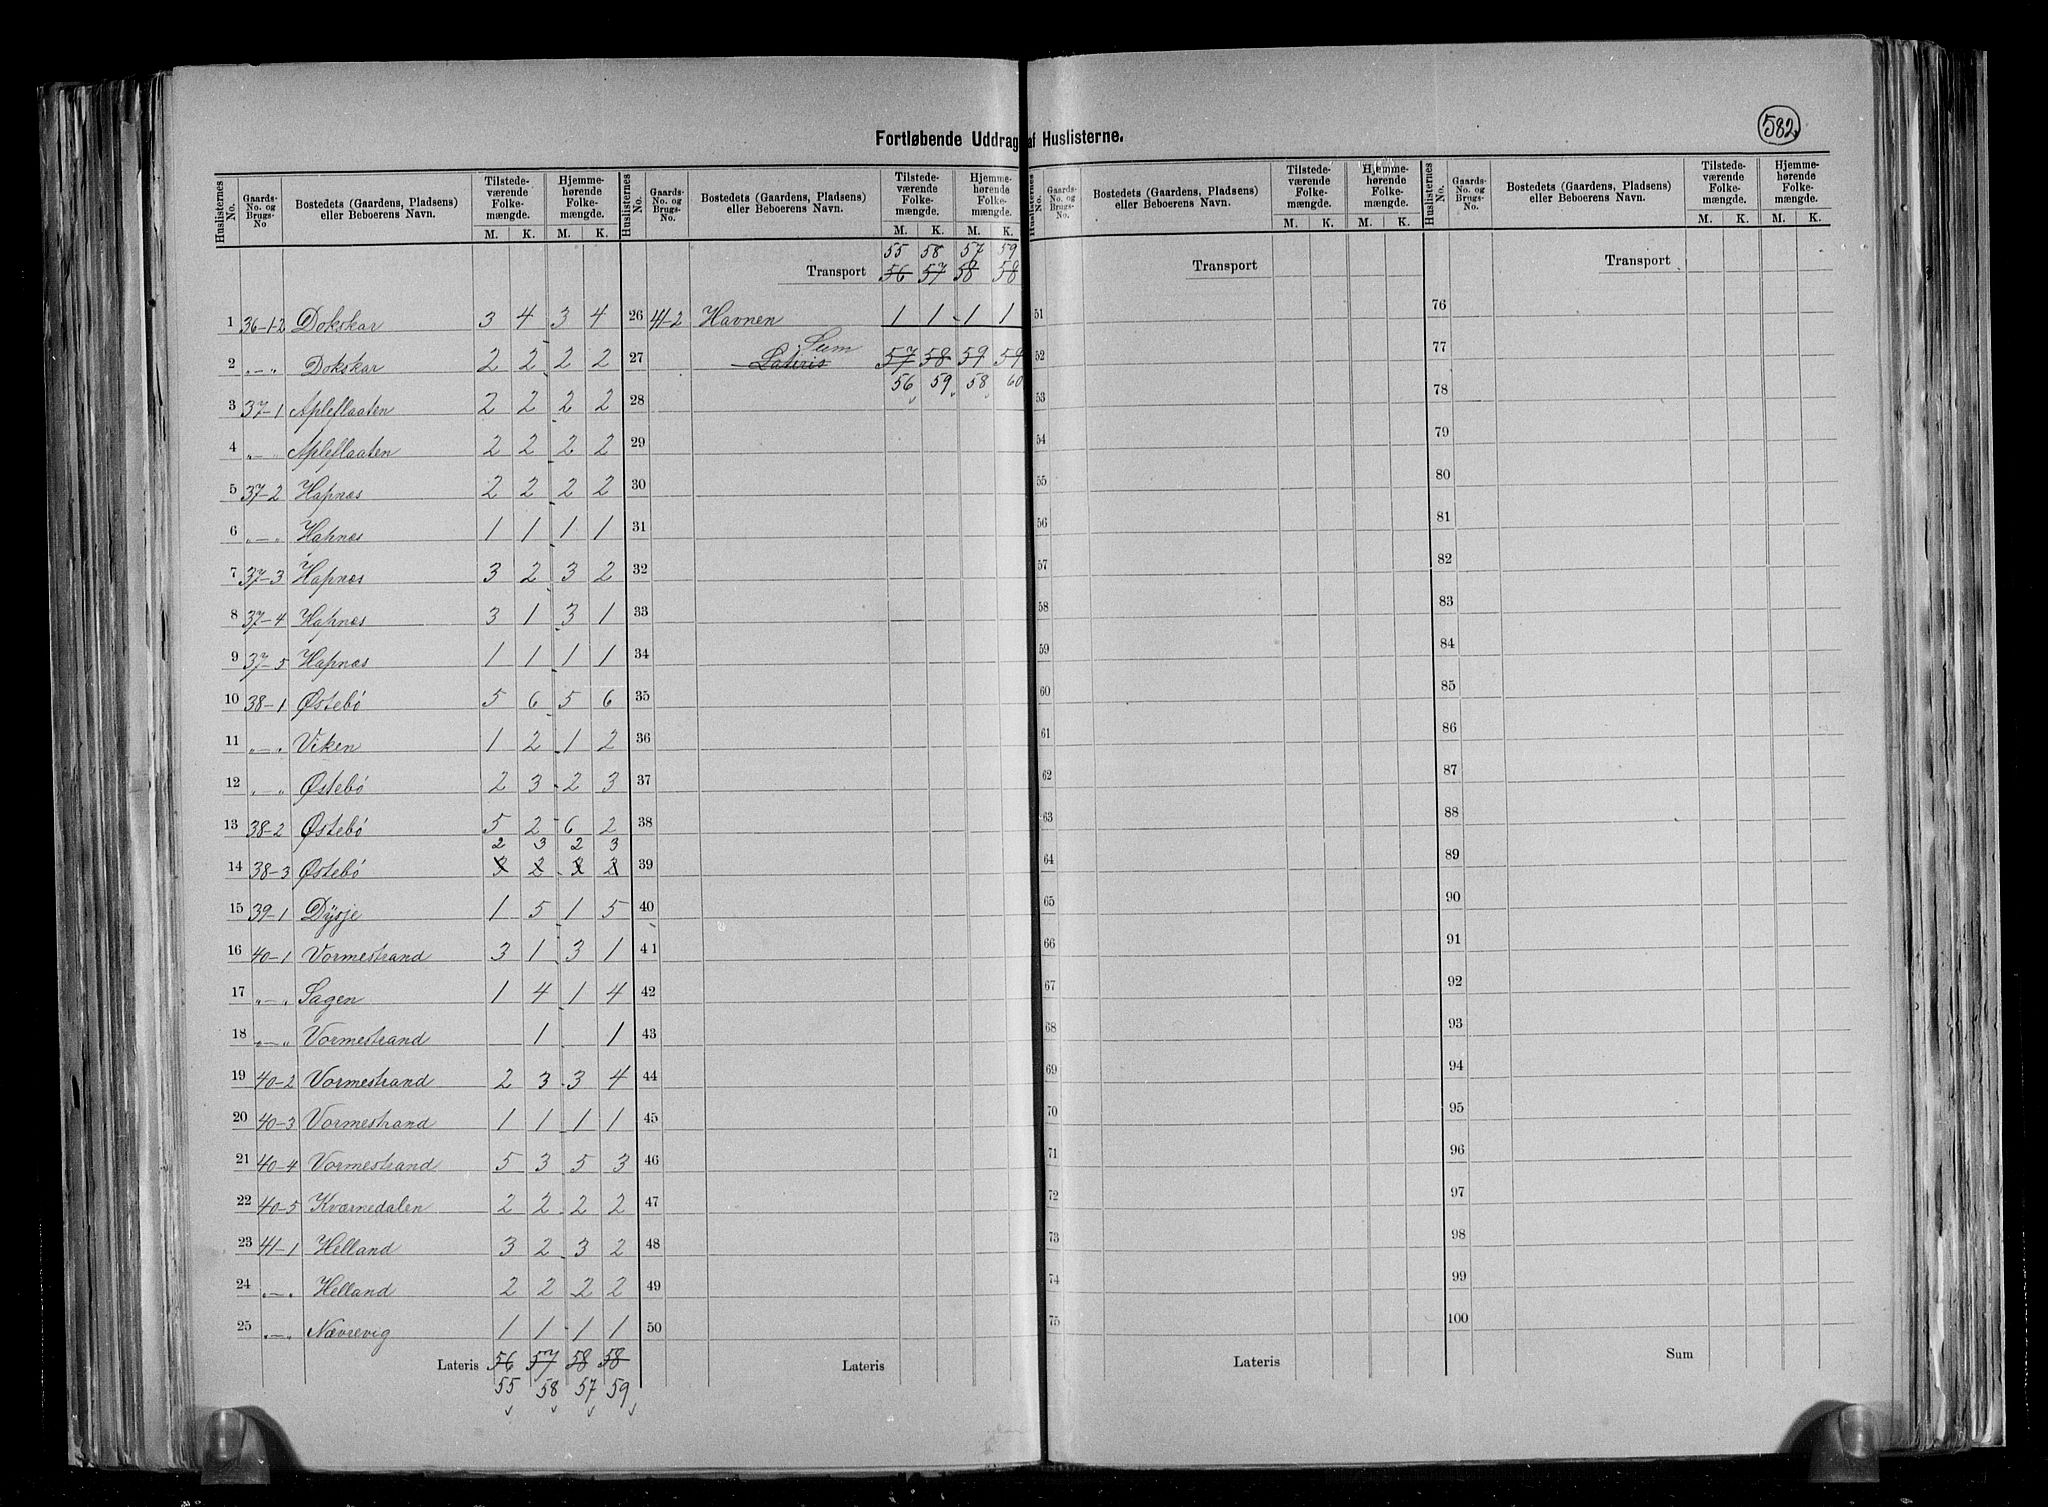 582
Fortløbende Uddrag af Huslisterne.
Huslisternes No. | Gaards-No. og Brugs-No | Bostedets (Gaardens, Pladsens) eller Beboerens Navn. | Tilstedeværende Folkemængde. M. K. | Hjemmehørende Folkemængde. M. K.
1 36-1-2 Dokskar 3 4 3 4
2 „-„ Dokskar 2 2 2 2
3 37-1 Apleflaaten 2 2 2 2
4 „-„ Apleflaaten 2 2 2 2
5 37-2 Hapnes 2 2 2 2
6 „-„ Hapnes 1 1 1 1
7 37-3 Hapnes 3 2 3 2
8 37-4 Hapnes 3 1 3 1
9 37-5 Hapnes 1 1 1 1
10 38-1 Østebø 5 6 5 6
11 „-„ Viken 1 2 1 2
12 „-„ Østebø 2 3 2 3
13 38-2 Østebø 5 2 6 2
2 3 2 3
14 38-3 Østebø
15 39-1 Dysje 1 5 1 5
16 40-1 Vormestrand 3 1 3 1
17 „-„ Sagen 1 4 1 4
18 „-„ Vormestrand 1 1
19 40-2 Vormestrand 2 3 3 4
20 40-3 Vormestrand 1 1 1 1
21 40-4 Vormestrand 5 3 5 3
22 40-5 Kværnedalen 2 2 2 2
23 41-1 Helland 3 2 3 2
24 „-„ Helland 2 2 2 2
25 „-„ Nævrevig 1 1 1 1
Lateris 56 57 58 58
55 58 57 59
Huslisternes No. | Gaards-No. og Brugs-No. | Bostedets (Gaardens, Pladsens) eller Beboerens Navn. | Tilstedeværende Folkemængde. M. K. | Hjemmehørende Folkemængde. M. K.
55 58 57 59
Transport 56 57 58 58
26 41-2 Havnen 1 1 1 1
Sum
27 Lateris 57 58 59 59
56 59 58 60
28
29
30
31
32
33
34
35
36
37
38
39
40
41
42
43
44
45
46
47
48
49
50
Lateris
Huslisternes No. | Gaards-No. og Brugs-No. | Bostedets (Gaardens, Pladsens) eller Beboerens Navn. | Tilstedeværende Folkemængde. M. K. | Hjemmehørende Folkemængde. M. K.
Transport
51
52
53
54
55
56
57
58
59
60
61
62
63
64
65
66
67
68
69
70
71
72
73
74
75
Lateris
Huslisternes No. | Gaards-No. og Brugs-No. | Bostedets (Gaardens, Pladsens) eller Beboerens Navn. | Tilstedeværende Folkemængde. M. K. | Hjemmehørende Folkemængde. M. K.
Transport
76
77
78
79
80
81
82
83
84
85
86
87
88
89
90
91
92
93
94
95
96
97
98
99
100
Sum